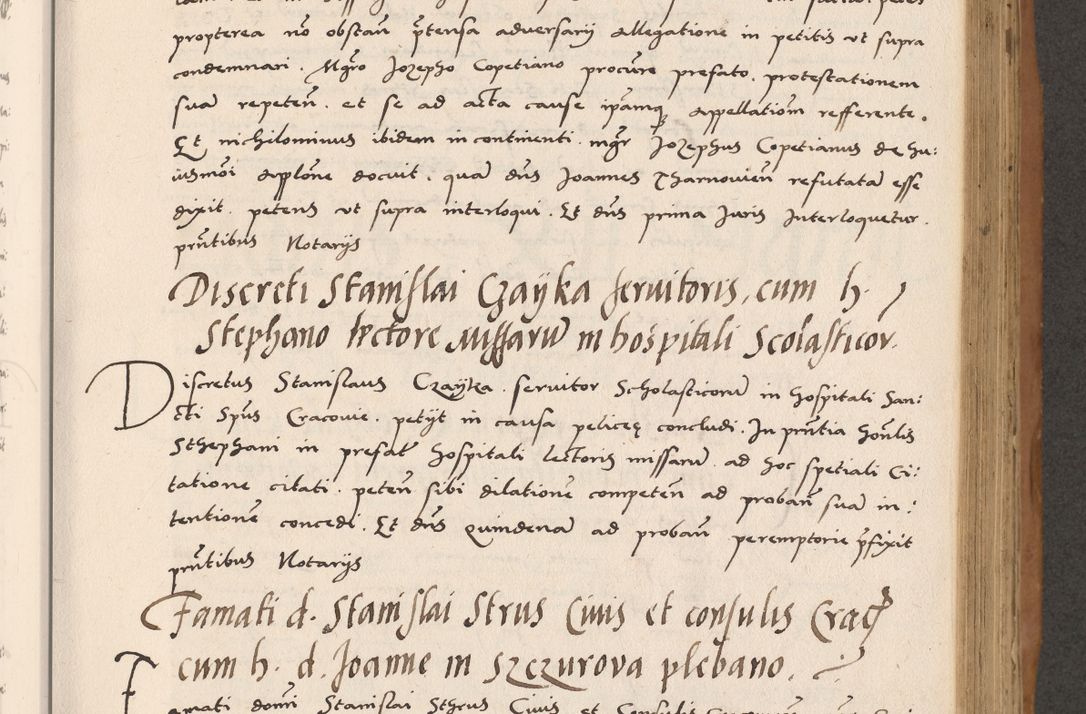 propterea nō obstan̄ p̄tensa adversarij allegatione in petitis ut supra
condemnari. Mgr̄o Jozepho Copetiano procure prefato. protestationem
suā repeten̄. et se ad acta cause ip̄amq̨ appellatiom̄ refferente.
Et nichilominus ibidem in continenti. mgr̄ Jozephus Copetianus de hu:
iusmōi applōne docuit. quā dn̄s Joannes Tharnovien̄ refutatā esse
dixit. petens ut supra interloqui. Et dn̄s prima Juris Interloquetur.
prn̄tibus Notarijs
Discreti Stanislai Czayka servitoris, cum h.
Stephano lectore missarū in hospitali Scolasticor.
Discretus Stanislaus Czayka. servitor Scholasticorū in hospitali San:
cti Sp̄us Cracovie. petijt in causa peliceę concludi. In prn̄tia hon̄lis
Sthephani in prefat̄ hospitali lectoris missarū. ad hoc spetiali Ci:
tatione citati. peten̄ sibi dilationē competen̄ ad proban̄ suā in:
tentionē concedi. Et dn̄s quindenā ad proban̄ peremptorie p̄fixit
prn̄tibus Notarijs
Famati d. Stanislai Strus Civis et consulis Crac̄
cum h. d. Joanne in Szczurova plebano.
Famati domi Stanislai Sthrus Civis et Consulis